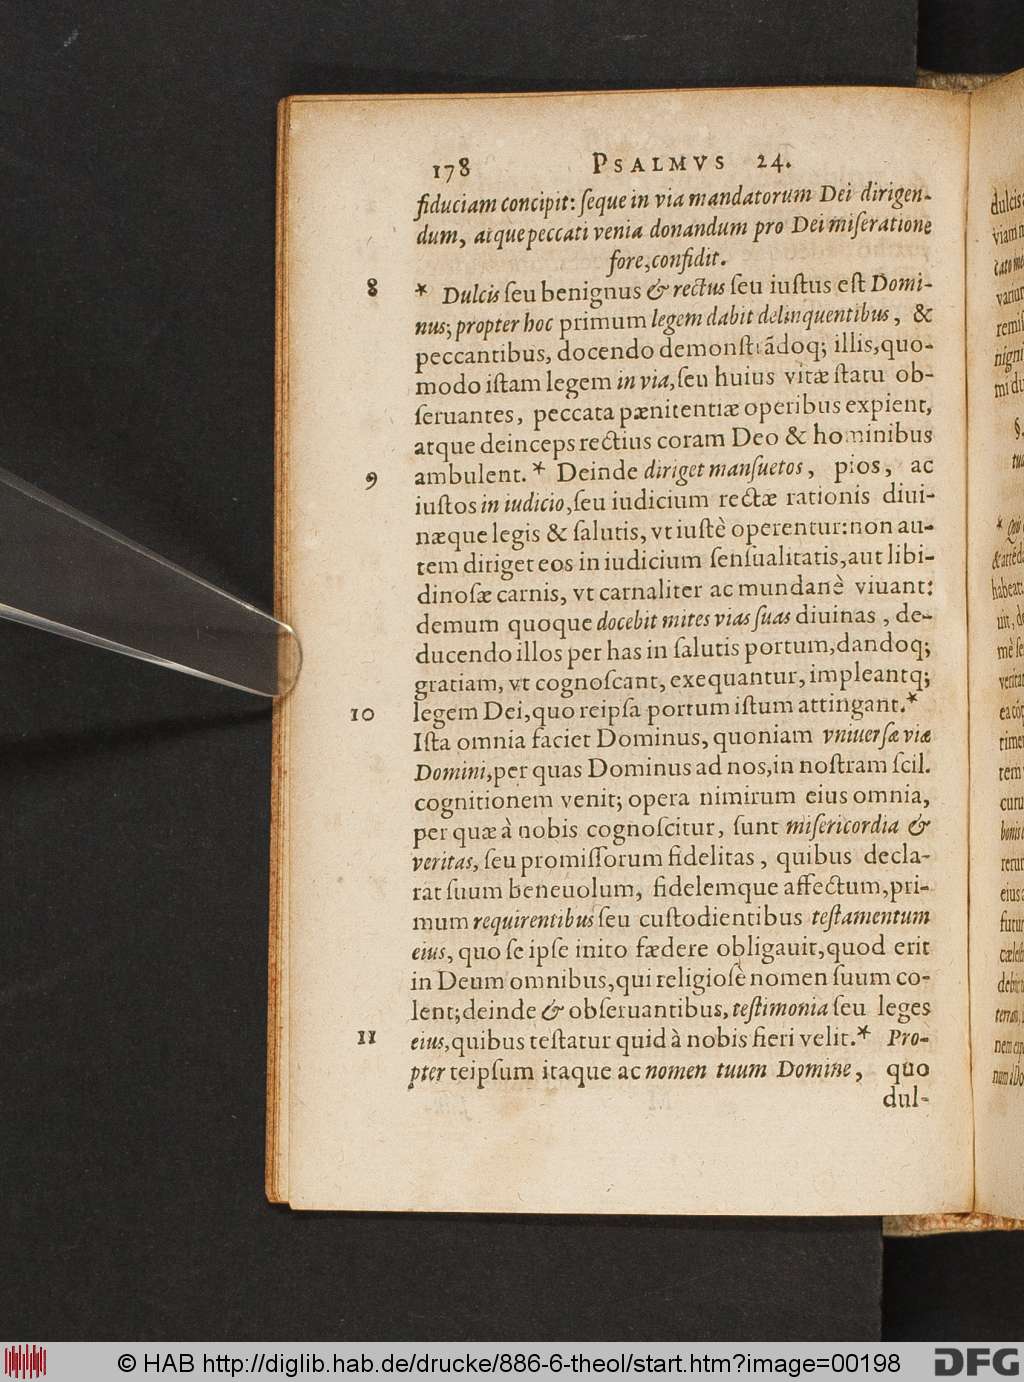 178 PSALMVS 24.
fiduciam concipit: ſeque in via mandatorum Dei dirigen-
dum, atque peccati venia donandum pro Dei miſeratione
fore, confidit.
8 * Dulcis ſeu benignus & rectus ſeu iuſtus eſt Domi-
nus; propter hoc primum legem dabit delinquentibus, &
peccantibus, docendo demonſtrãdoq; illis, quo-
modo iſtam legem in via, ſeu huius vitæ ſtatu ob-
ſeruantes, peccata pænitentiæ operibus expient,
atque deinceps rectius coram Deo & hominibus
9 ambulent. * Deinde diriget manſuetos, pios, ac
iuſtos in iudicio, ſeu iudicium rectæ rationis diui-
næque legis & ſalutis, vt iuſtè operentur: non au-
tem diriget eos in iudicium ſenſualitatis, aut libi-
dinoſæ carnis, vt carnaliter ac mundanè viuant:
demum quoque docebit mites vias ſuas diuinas, de-
ducendo illos per has in ſalutis portum, dandoq;
gratiam, vt cognoſcant, exequantur, impleantq;
10 legem Dei, quo reipſa portum iſtum attingant. *
Iſta omnia faciet Dominus, quoniam vniuerſæ viæ
Domini, per quas Dominus ad nos, in noſtram ſcil.
cognitionem venit; opera nimirum eius omnia,
per quæ à nobis cognoſcitur, ſunt miſericordia &
veritas, ſeu promiſſorum fidelitas, quibus decla-
rat ſuum beneuolum, fidelemque affectum, pri-
mum requirentibus ſeu cuſtodientibus teſtamentum
eius, quo ſe ipſe inito fædere obligauit, quod erit
in Deum omnibus, qui religioſè nomen ſuum co-
lent; deinde & obſeruantibus, teſtimonia ſeu leges
11 eius, quibus teſtatur quid à nobis fieri velit. * Pro-
pter teipſum itaque ac nomen tuum Domine, quo
dul-
© HAB http://diglib.hab.de/drucke/886-6-theol/start.htm?image=00198
DFG